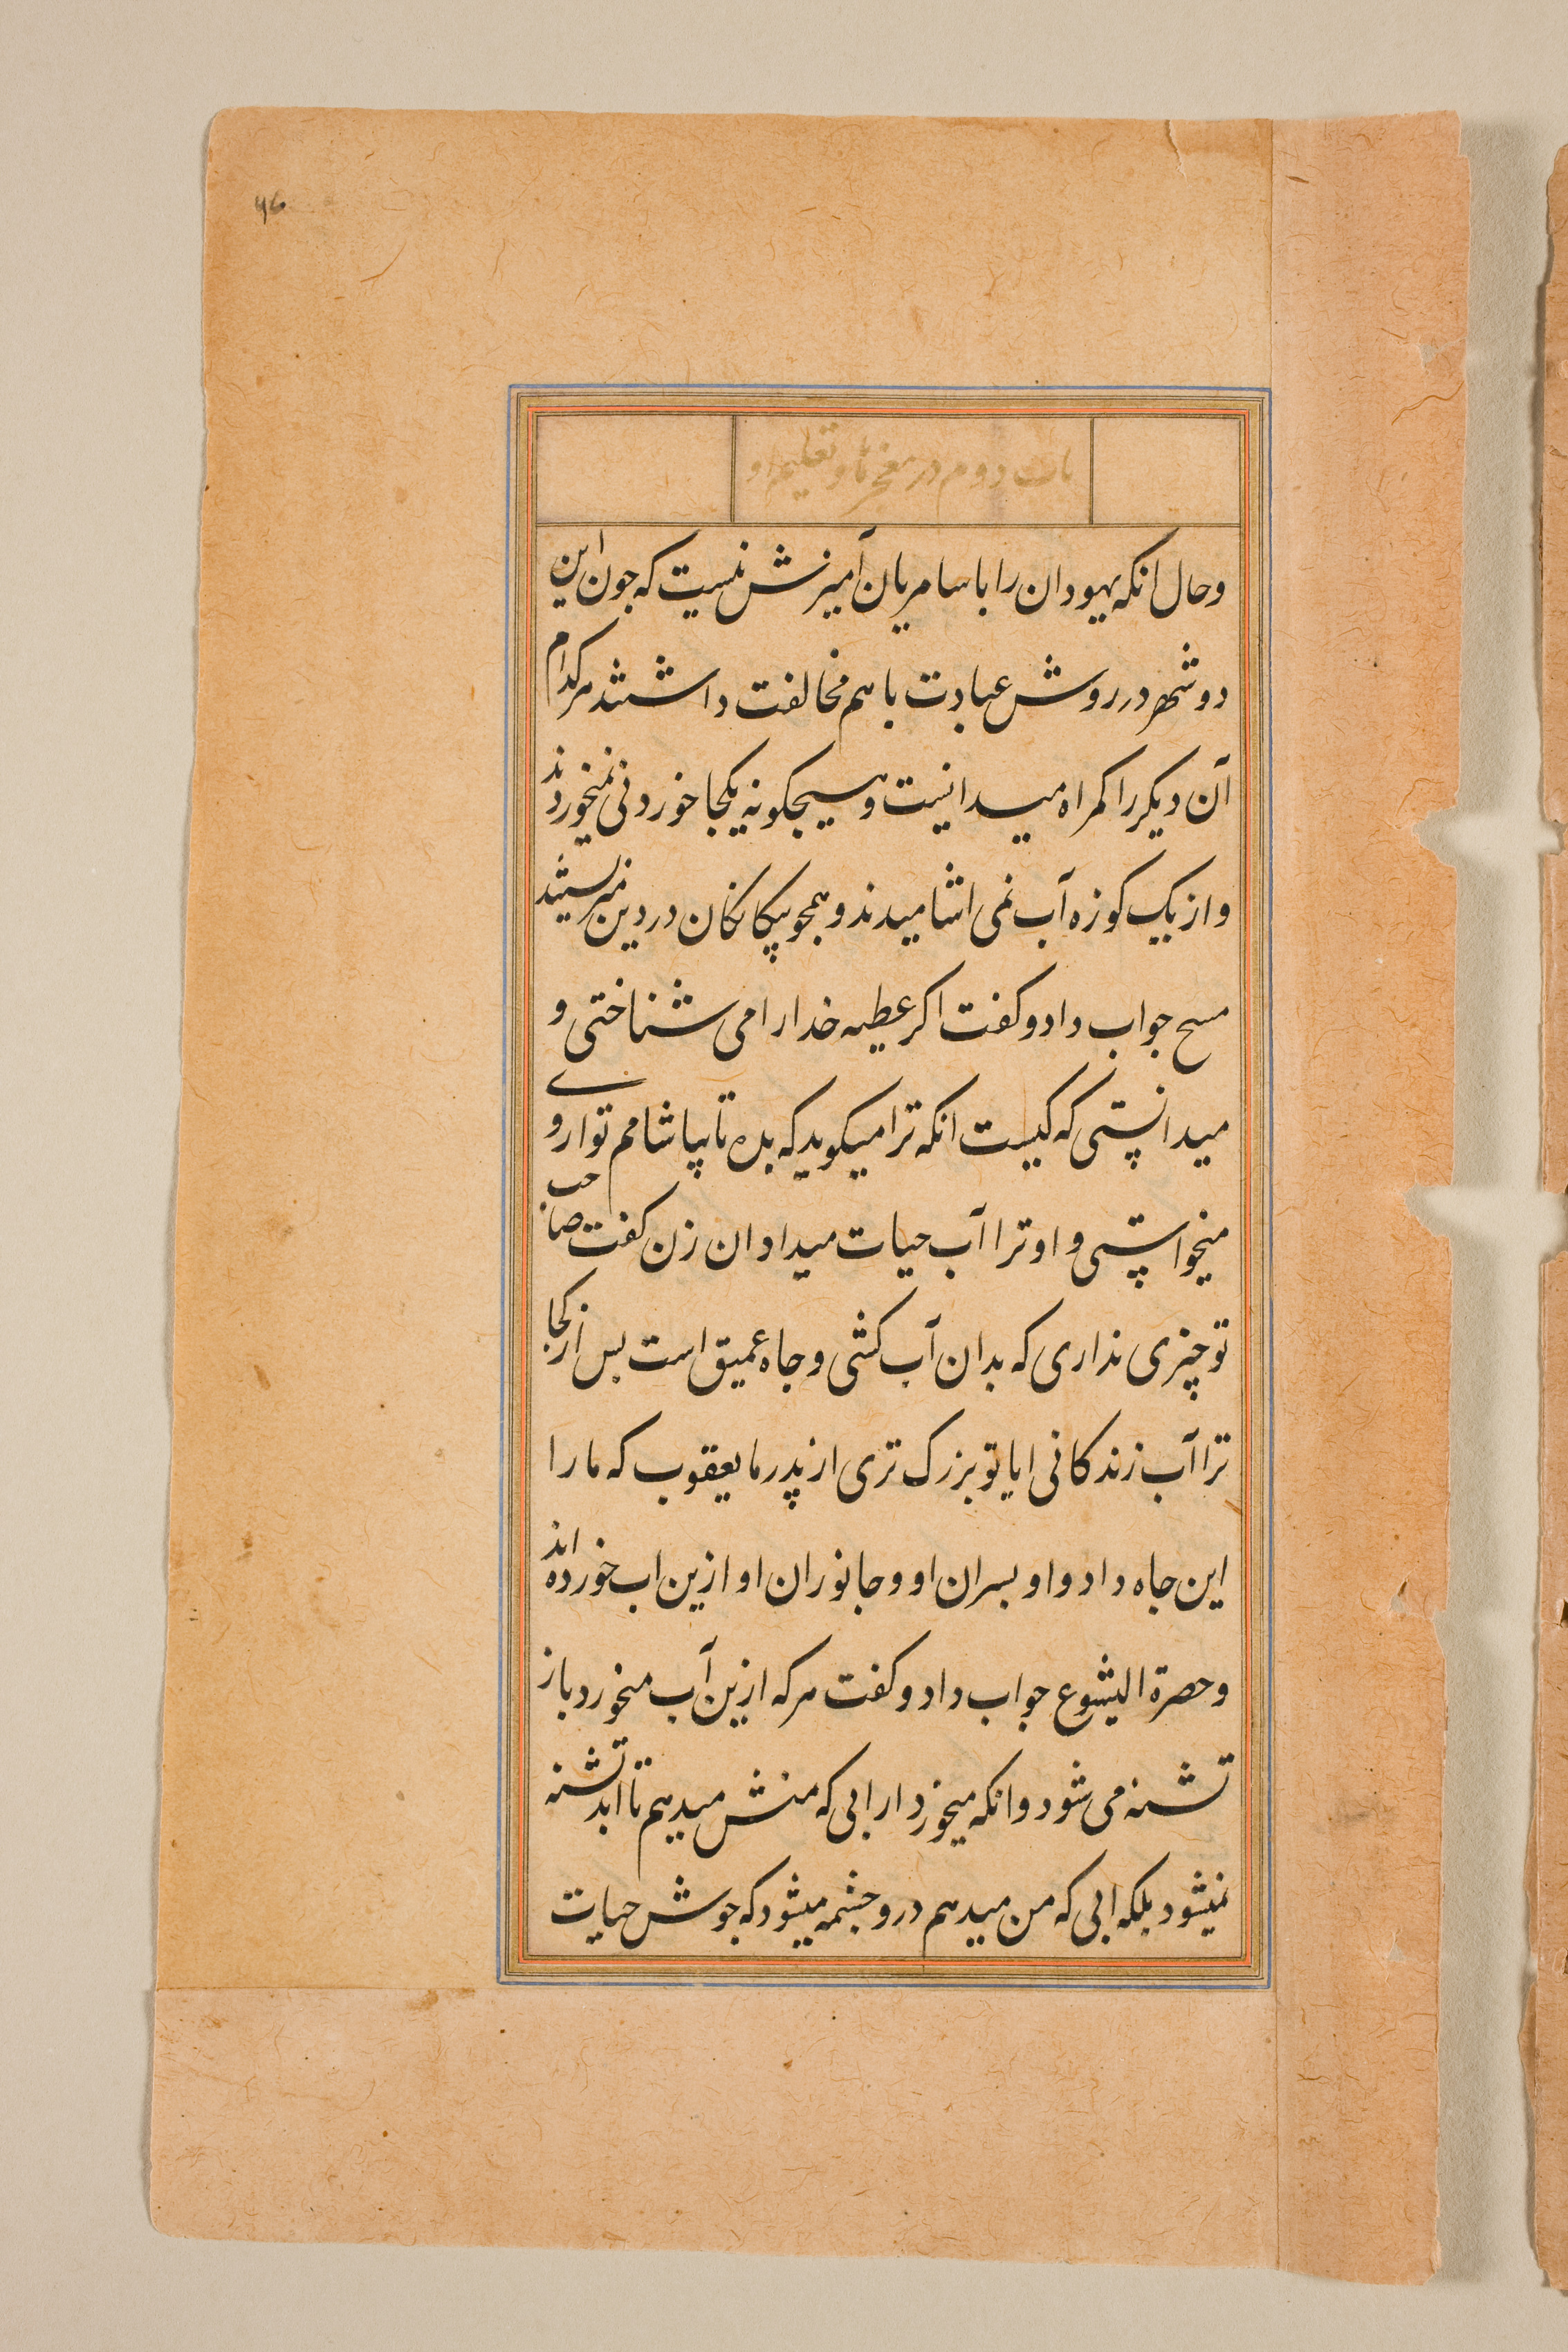 ۷۶
باب دوم در معجزها و تعلیم او
وحال انکه یهودان را با سامریان آمیزش نیست که جون این
دو شهر در روش عبادت باهم مخالفت داشتند هرکدام
آن دیکر را کمراه میدانست و هیجکونه یکجا خوردنی نمیخوردند
و از یک کوزه آب نمی اشامیدند و همجو بیکانکان در دین میزیستند
مسح جواب داد و کفت اکر عطیه خدا را می شناختی و
میدانستی که کیست انکه ترا میکوید که بده تا بیاشامم تو ازوی
میخواستی و او ترا آب حیات میداد ان زن کفت صاحب
تو چیزی نداری که بدان آب کشی و جاه عمیق است بس از کجا
ترا آب زندکانی ایا تو بزرک تری از پدر ما یعقوب که ما را
این جاه داد و او بسران او و جانوران او ازین اب خورده اند
و حضرة الیشوع جواب داد و کفت هرکه ازین آب میخورد باز
تشنه می شود وانکه میخورد از ابی که منش میدهم تا ابد تشنه
نمیشود بلکه ابی که من میدهم درو جشمه میشود که جوش حیات